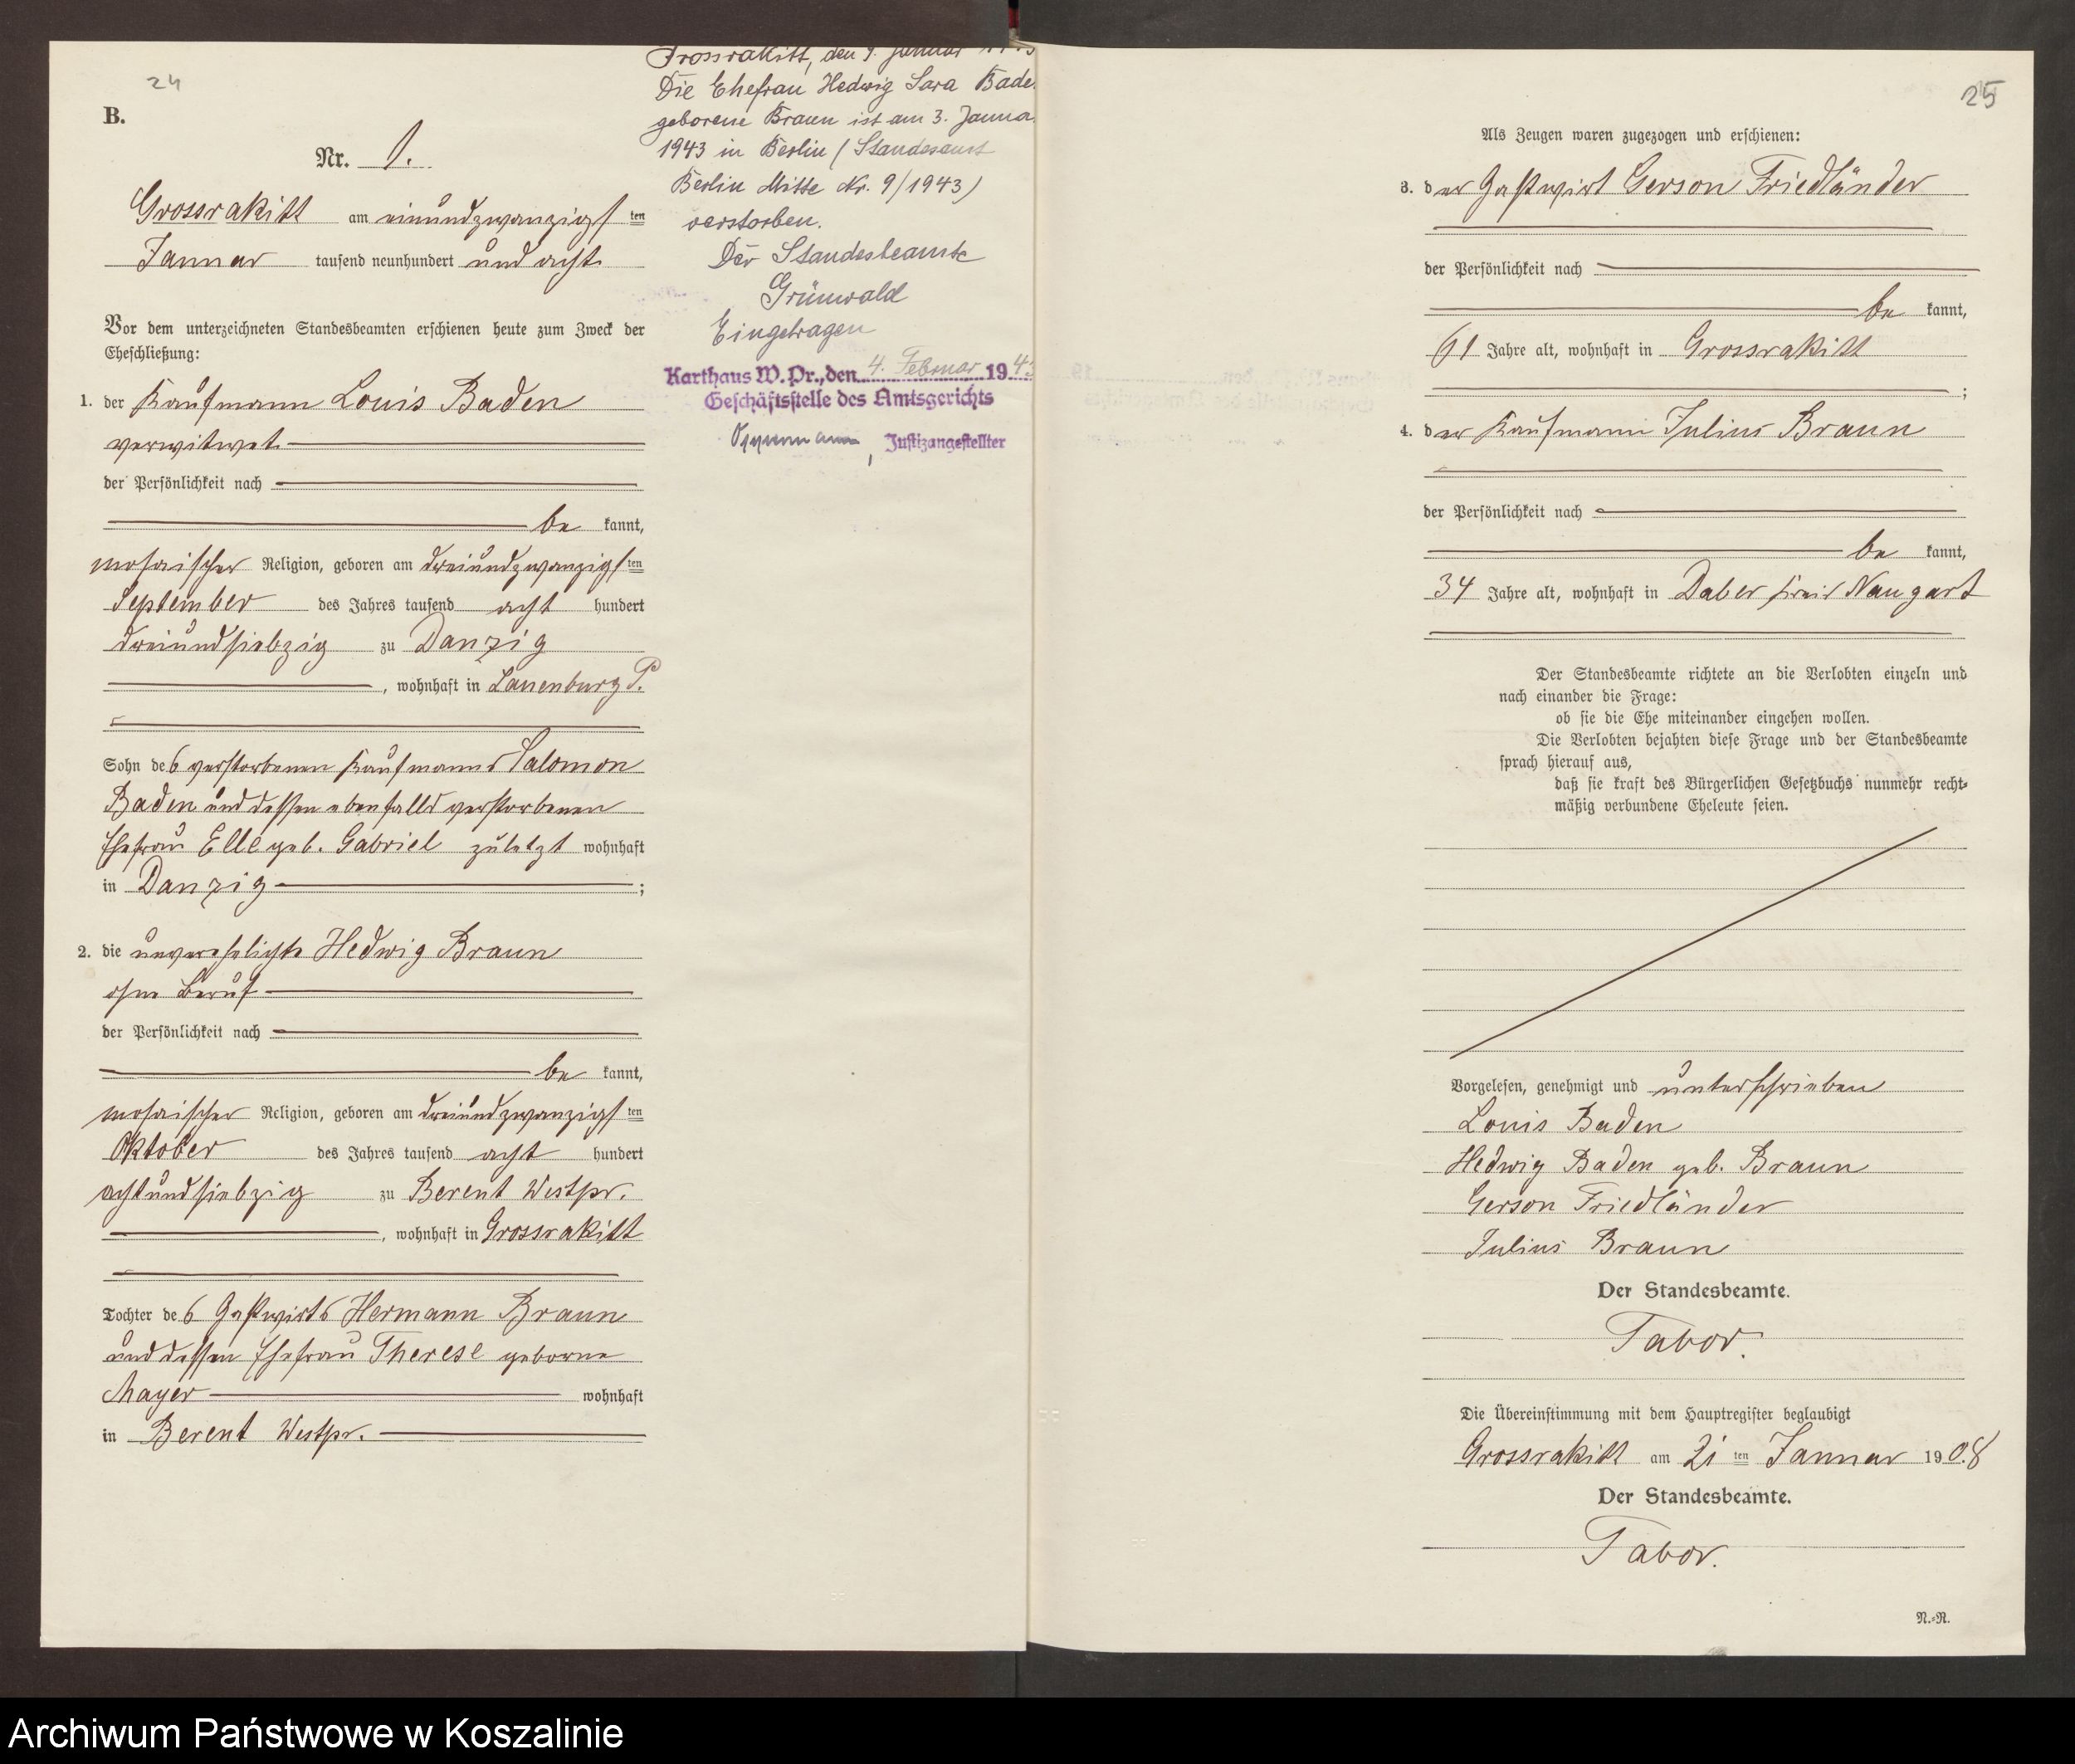 24
B.
Nr. 1.
Grossrakitt am einundzwanzigsten
Januar tausend neunhundert und acht
Vor dem unterzeichneten Standesbeamten erschienen heute zum Zweck der
Eheschließung:
1. der Kaufmann Louis Baden
verwitwet
der Persönlichkeit nach
be kannt,
mosaischer Religion, geboren am dreiundzwanzigsten
September des Jahres tausend acht hundert
dreiundsiebzig zu Danzig
, wohnhaft in Lauenburg P.
Sohn des verstorbenen Kaufmanns Salomon
Baden und dessen ebenfalls verstorbenen
Ehefrau Elle geb. Gabriel zuletzt wohnhaft
in Danzig ;
2. die unverehelichte Hedwig Braun
ohne Beruf
der Persönlichkeit nach
be kannt,
mosaischer Religion, geboren am dreiundzwanzigsten
Oktober des Jahres tausend acht hundert
achtundsiebzig zu Berent Westpr.
, wohnhaft in Grossrakitt
Tochter des Gastwirts Hermann Braun
und dessen Ehefrau Therese geborne
Mayer wohnhaft
in Berent Westpr.
Grossrakitt, den 9. Januar
Die Ehefrau Hedwig Sara Bade
geborene Braun ist am 3. Janua
1943 in Berlin (Standesamt
Berlin Mitte Nr. 9/1943)
verstorben.
Der Standesbeamte
Grünwald
Eingetragen
Karthaus W. Pr., den 4. Februar 1943
Geschäftsstelle des Amtsgerichts
, Justizangestellter
25
Als Zeugen waren zugezogen und erschienen:
3. der Gastwirt Gerson Friedländer
der Persönlichkeit nach
be kannt,
61 Jahre alt, wohnhaft in Grossrakitt
;
4. der Kaufmann Julius Braun
der Persönlichkeit nach
be kannt,
34 Jahre alt, wohnhaft in Daber Kreis Naugart
Der Standesbeamte richtete an die Verlobten einzeln und
nach einander die Frage:
ob sie die Ehe miteinander eingehen wollen.
Die Verlobten bejahten diese Frage und der Standesbeamte
sprach hierauf aus,
daß sie kraft des Bürgerlichen Gesetzbuchs nunmehr recht-
mäßig verbundene Eheleute seien.
Vorgelesen, genehmigt und unterschrieben
Louis Baden
Hedwig Baden geb. Braun
Gerson Friedländer
Julius Braun
Der Standesbeamte.
Tabor.
Die Übereinstimmung mit dem Hauptregister beglaubigt
Grossrakitt am 21ten Januar 1908
Der Standesbeamte.
Tabor.
N.-R.
Archiwum Państwowe w Koszalinie